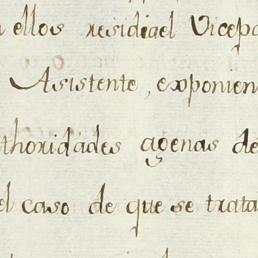 n ellos residia el Vicepa
Asistente, exponien
thoridades agenas de
el caso de que se trata